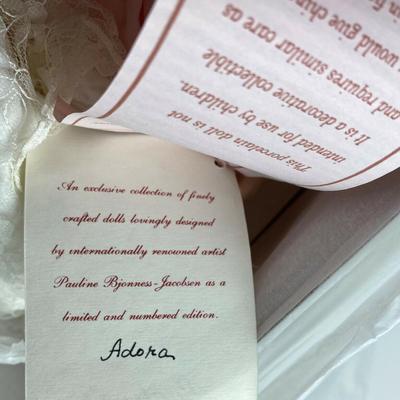 This porcelain doll is not
intended for use by children.
It is a decorative collectible
and requires similar care as
would give
An exclusive collection of finely
crafted dolls lovingly designed
by internationally renowned artist
Pauline Bjonness-Jacobsen as a
limited and numbered edition.
Adora